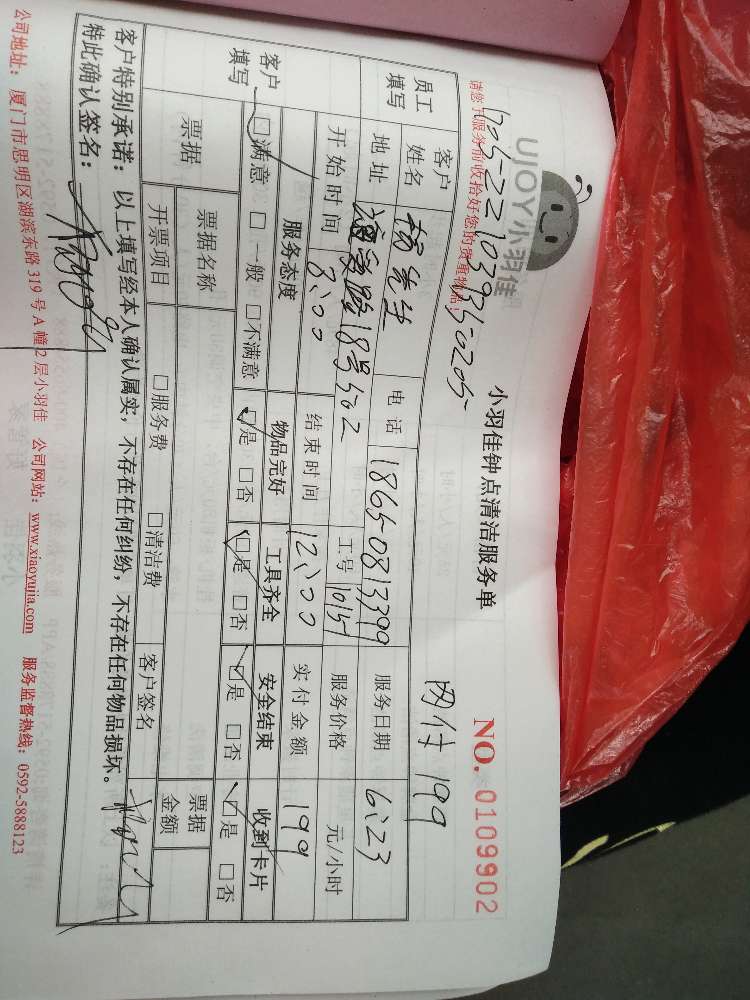 UJOY小羽佳
小羽佳钟点清洁服务单
NO. 0109902
请您于服务前收拾好您的贵重物品！
网付 199
员工填写
客户姓名 杨先生 电话 1865-0813399 服务日期 6:23
地址 18号502 工号 服务价格 元/小时
开始时间 8:00 结束时间 12:00 实付金额 199
客户填写
服务态度 物品完好 工具齐全 安全结束 收到卡片
☑满意 □一般 □不满意 ☑是 □否 ☑是 □否 ☑是 □否 ☑是 □否
票据 票据名称 票据金额
开票项目 □服务费 □清洁费 客户签名
客户特别承诺：以上填写经本人确认属实，不存在任何纠纷，不存在任何物品损坏。
特此确认签名：
公司地址：厦门市思明区湖滨东路 319 号 A 幢 2 层小羽佳 公司网站：www.xiaoyujia.com 服务监督热线：0592-5888123